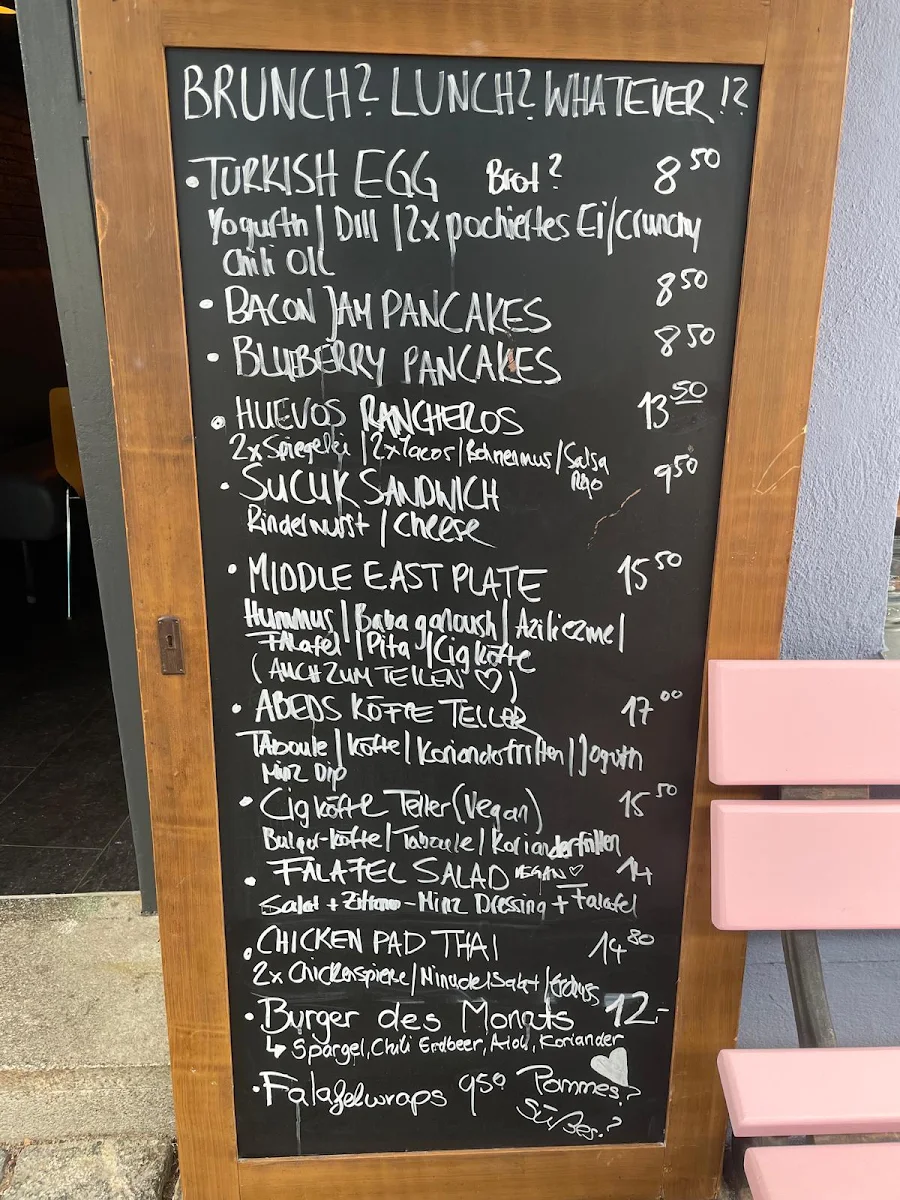 BRUNCH? LUNCH? WHATEVER!?
• TURKISH EGG Brot? 8 50
Yogurth | Dill | 2x pochiertes Ei/crunchy
Chili Oil
• BACON JAM PANCAKES 8 50
• BLUEBERRY PANCAKES 8 50
• HUEVOS RANCHEROS 13 50
2x Spiegelei | 2x Tacos | Bohnenmus / Salsa
Rojo
• SUCUK SANDWICH 9 50
Rinderwurst | Cheese
• MIDDLE EAST PLATE 15 50
Hummus | Baba ganoush | Aziliezme |
Falafel | Pita | Cigköfte
(AUCH ZUM TEILEN ♡)
• ABEDS KÖFTE TELLER 17 00
Taboule | Köfte | Korianderfritten | Jogurth
Minz Dip
• Cigköfte Teller (Vegan) 15 50
Bulgur-köfte | Taboule | Korianderfritten
• FALAFEL SALAD VEGAN ♡ 14
Salat + Zitrone-Minz Dressing + Falafel
• CHICKEN PAD THAI 14 80
2x Chickenspiese / Minudelsalat /
• Burger des Monats 12,-
↳ Spargel, Chili Erdbeer, Aioli, Koriander
• Falafelwraps 9 50 Pommes?
Süßes?